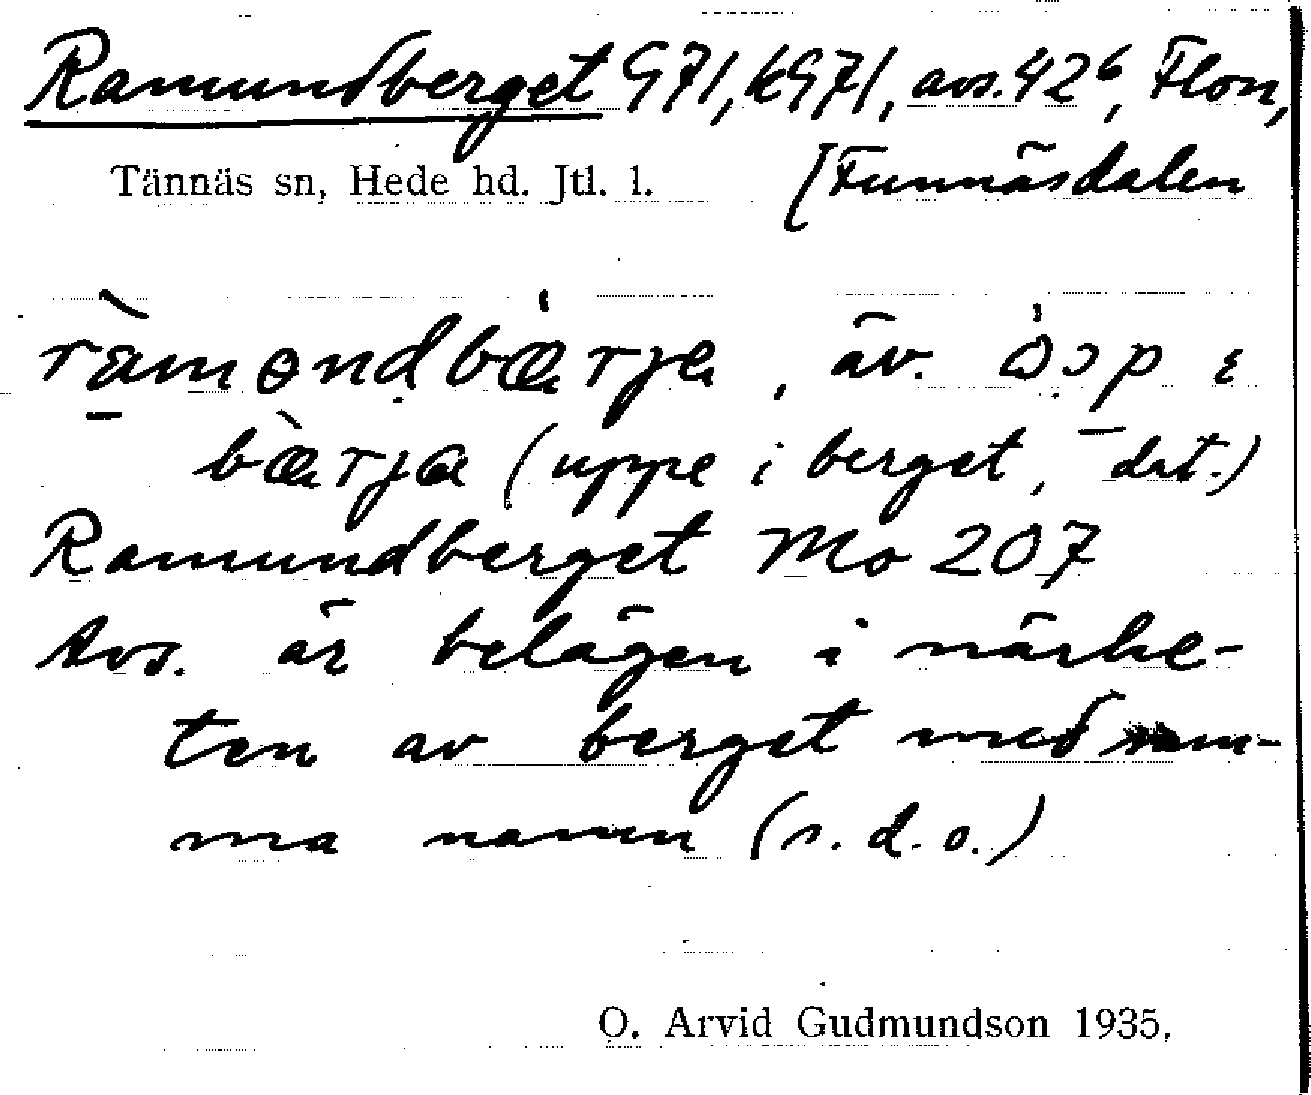 Ramundberget G71, kG71, avs. 42⁶, Flon,
Tännäs sn, Hede hd. Jtl. l. [Funnäsdalen
ràmɵndbærje, äv. i
bærja (uppe i berget, dat.)
Ramundberget Mo 207
Avs. är belägen i närhe-
ten av berget med sam-
ma namn (s. d. o.)
O. Arvid Gudmundson 1935.